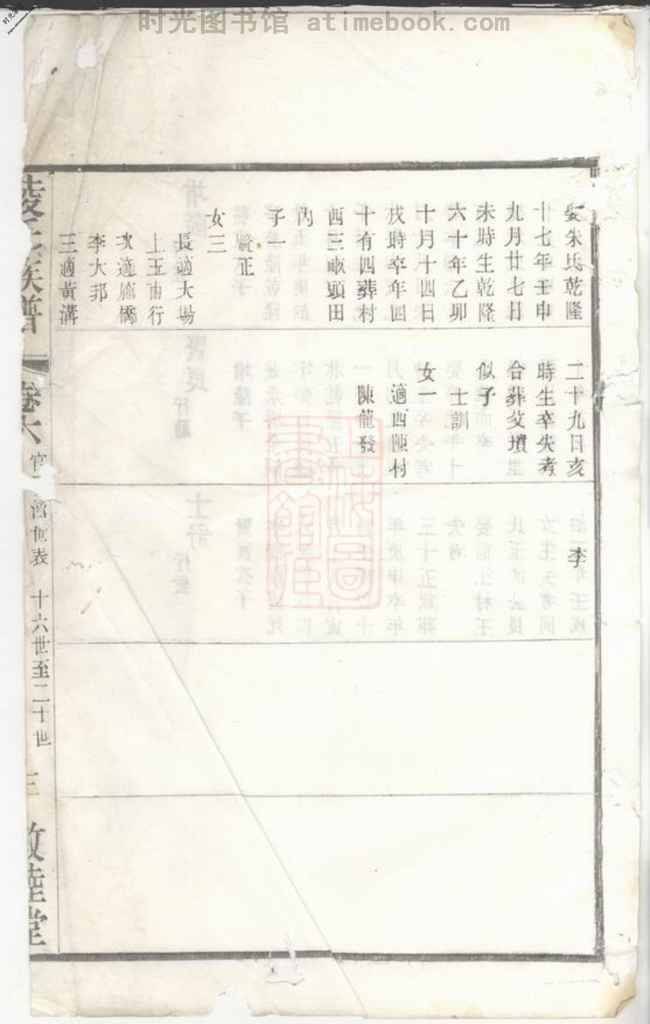 时光图书馆 atimebook.com
娶朱氏乾隆
十七年壬申
九月廿七日
未時生乾隆
六十年乙卯
十月十四日
戌時卒年四
十有四葬村
西三畝頭田
內
子一
賢正
女三
長適大場
上王由行
次適
李大邦
三適黃溝
二十九日亥
時生卒失考
合葬父墳
似子
士訓
女一
適西陳村
陳龍發
李
凌氏族譜
卷六
官
世表
十六世至二十世
三
敦睦堂